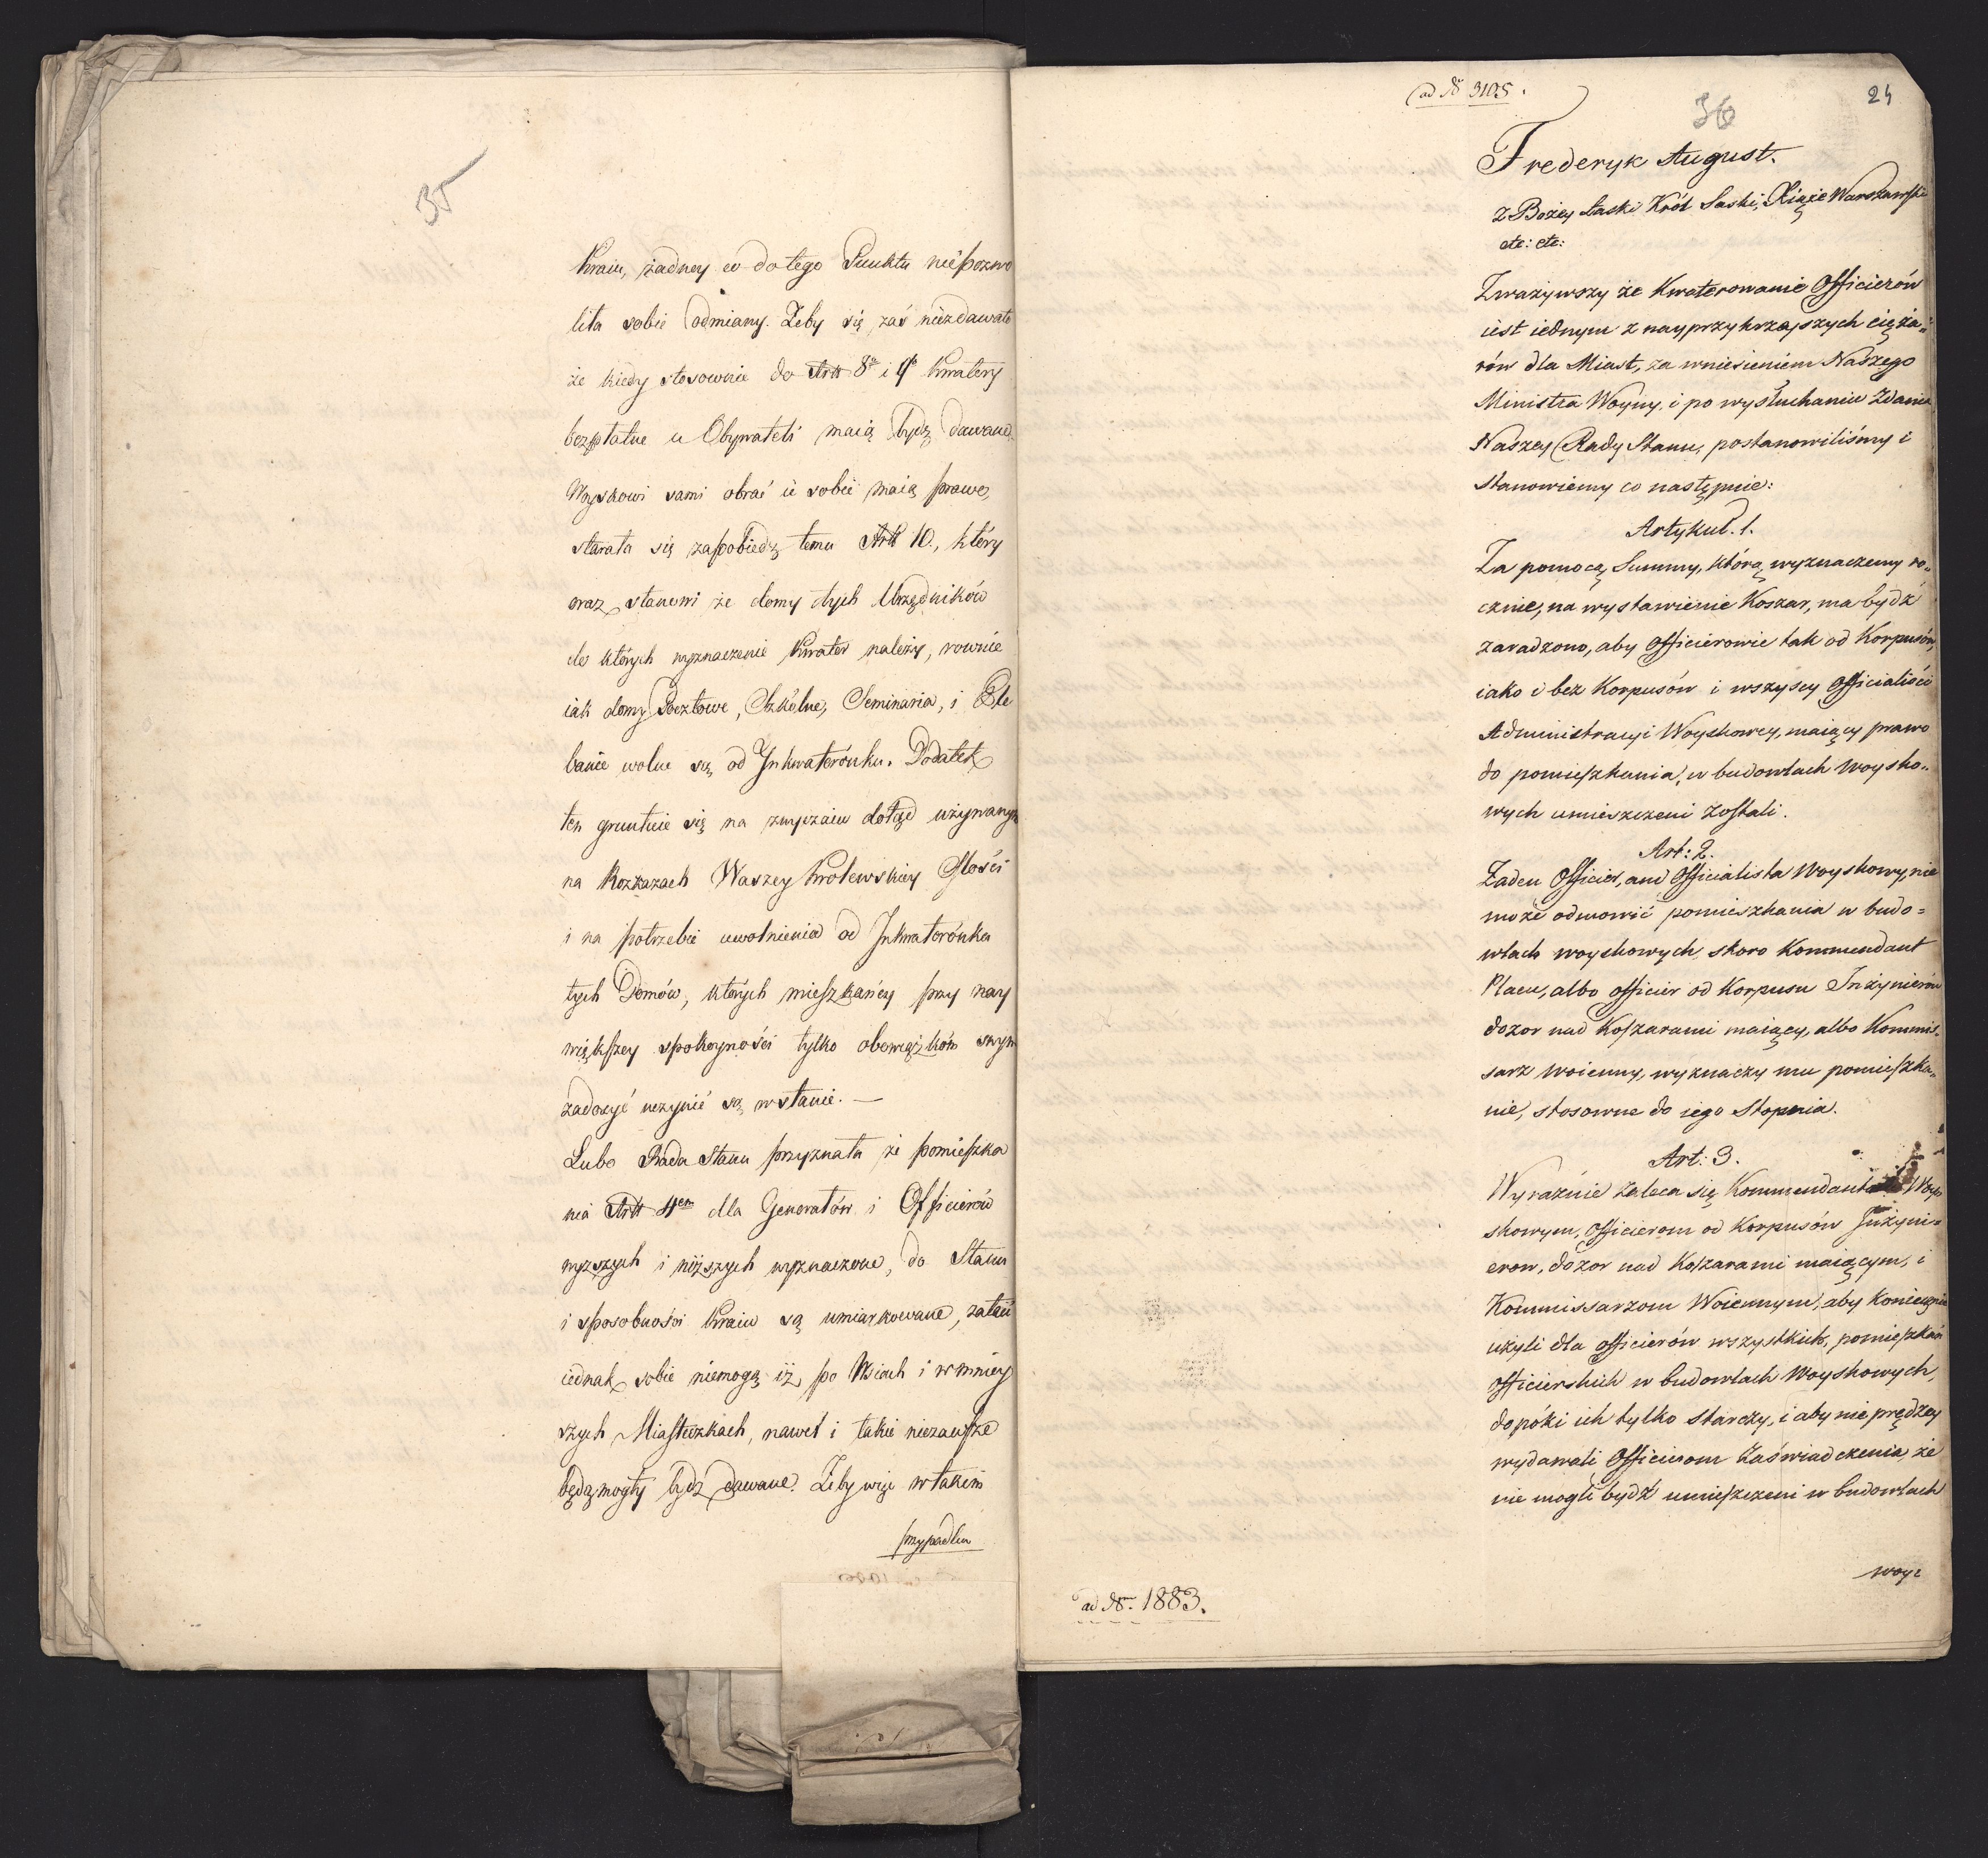 35
Kraiu, żadney co do tego Punktu niepozwo
liła sobie odmiany. Żeby się zaś niezdawało
że kiedy stosownie do Artt 8go i 9go kwatery
bezpłatne u Obywateli maią bydź dawane,
Woyskowi sami obrać ie sobie maią prawo,
starała się zapobiedz temu Artt 10., który
oraz stanowi że domy tych Urzędników
do których wyznaczenie Kwater należy, rownie
iak domy Pocztowe, Szkólne, Seminaria, i Ple
banie wolne są od Inkwaterónku. Dodatek
ten gruntuie się na zwyczaiu dotąd używanym
na Rozkazach Waszey Krolewskiey Mości
i na potrzebie uwolnienia od Inkwaterónku
tych Domów, których mieszkańcy przy nay
większey spokoyności tylko obowiązkóm swym
zadosyć uczynić są wstanie. —
Lubo Rada Stanu przyznała że pomieszka
nia Artt 4em dla Generałów i Officierów
wyższych i niższych wyznaczone, do Stanu
i sposobności Kraiu są umiarkowane, zataić
iednak sobie niemogą iż po Wsiach i wmniey
szych Miasteczkach, nawet i takie niezawsze
będą mogły bydź dawane. Żeby więc wtakim
przypadku
ad N 3105.
36
24
Frederyk August.
z Bożey Łaski Król Saski, Xiąże Warszawski
etc: etc:
Zważywszy że Kwaterowanie Officierów
iest iednym z nayprzykrzeyszych cięża-
rów dla Miast, za wniesieniem Naszego
Ministra Woyny, i po wysłuchaniu Zdania
Naszey Rady Stanu, postanowiliśmy i
Stanowiemy co następuie:
Artykuł. 1.
Za pomocą Summy, którą wyznaczemy ro-
cznie, na wystawienie Koszar, ma bydź
zaradzono, aby Officierowie tak od Korpusów,
iako i bez Korpusów i wszyscy Officialiści
Administracyi Woyskowey, maiący prawo
do pomieszkania, w budowlach Woysko-
wych umieszczeni zostali.
Art: 2.
Żaden Officier, ani Officialista Woyskowy, nie
może odmowić pomieszkania w budo=
wlach woyskowych, skoro Kommendant
Placu, albo officier od Korpusu Inżynierów
dozor nad Koszarami maiący, albo Kommis-
sarz Woienny, wyznaczy mu pomieszka-
nie, stosowne do iego Stopnia.
Art: 3.
Wyraźnie zaleca się Kommendantom Woy
skowym, Officierom od Korpusów Inżyni=
erow, dozor nad Koszarami maiącym, i
Kommissarzom Woiennym, aby koniecznie
użyli dla officierów wszystkich, pomieszkań
officierskich w budowlach Woyskowych,
dopóki ich tylko starczy, i aby nie prędzey
wydawali Officierom Zaświadczenia, że
nie mogli bydź umieszczeni w budowlach
woy=
ad N. 1883.